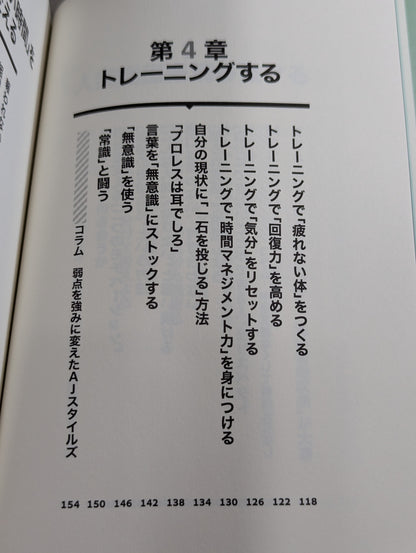 第4章
トレーニングする
トレーニングで「疲れない体」をつくる
トレーニングで「回復力」を高める
トレーニングで「気分」をリセットする
トレーニングで「時間マネジメント力」を身につける
自分の現状に「一石を投じる」方法
「プロレスは耳でしろ」
言葉を「無意識」にストックする
「無意識」を使う
「常識」と闘う
コラム 弱点を強みに変えたAJスタイルズ
118
122
126
130
134
138
142
146
150
154